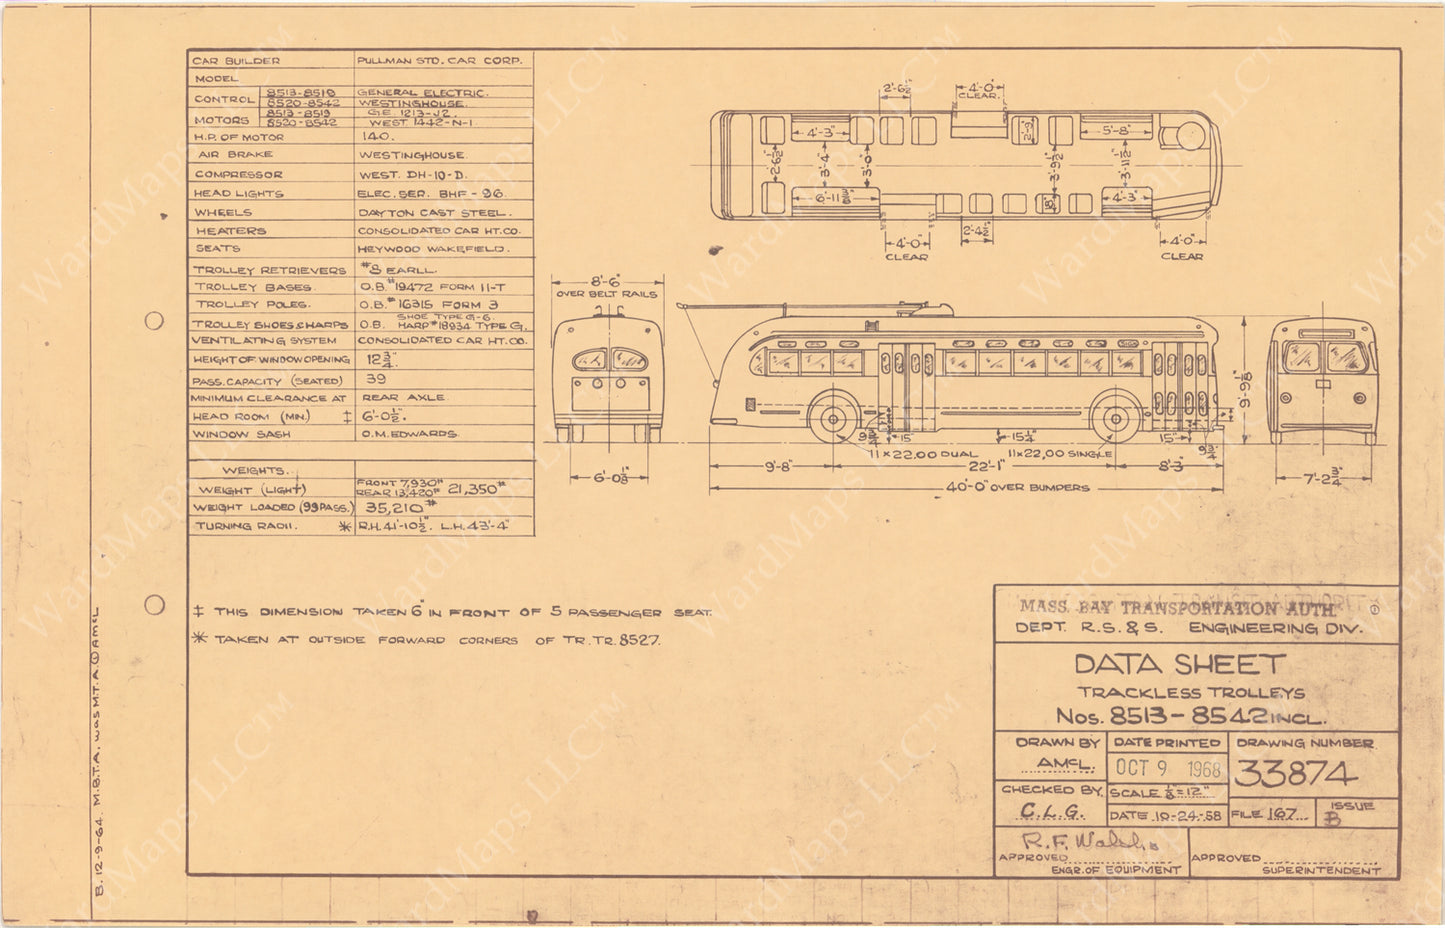 CAR BUILDER PULLMAN STD. CAR CORP.
MODEL
CONTROL 8513-8519 GENERAL ELECTRIC.
8520-8542 WESTINGHOUSE.
MOTORS 8513-8519 G.E. 1213-J2.
8520-8542 WEST 1442-N-1
H.P. OF MOTOR 140.
AIR BRAKE WESTINGHOUSE.
COMPRESSOR WEST. DH-10-D.
HEAD LIGHTS ELEC. SER. BHF-96.
WHEELS DAYTON CAST STEEL.
HEATERS CONSOLIDATED CAR HT.CO.
SEATS HEYWOOD WAKEFIELD.
TROLLEY RETRIEVERS #8 EARLL.
TROLLEY BASES. O.B. #19472 FORM 11-T
TROLLEY POLES. O.B. #16315 FORM 3
TROLLEY SHOES & HARPS O.B. SHOE TYPE G-6.
HARP #18934 TYPE G.
VENTILATING SYSTEM CONSOLIDATED CAR HT.CO.
HEIGHT OF WINDOW OPENING 12 3/4".
PASS. CAPACITY (SEATED) 39
MINIMUM CLEARANCE AT REAR AXLE.
HEAD ROOM (MIN.) ‡ 6'-0 1/2".
WINDOW SASH O.M. EDWARDS.
WEIGHTS.
WEIGHT (LIGHT) FRONT 7,930# REAR 13,420# 21,350#
WEIGHT LOADED (99 PASS.) 35,210#
TURNING RADII. * R.H. 41'-10 1/2". L.H. 43'-4"
2'-6 1/2"
4'-0"
CLEAR.
4'-3"
2'-9"
5'-8"
2'-6 1/2"
3'-4"
3'-0"
3'-9 1/2"
3'-11 1/2"
6'-11
18"
4'-3"
4'-0"
CLEAR
2'-4 1/2"
4'-0"
CLEAR
8'-6"
OVER BELT RAILS
6'-0 1/8"
9'-9 1/8"
15"
15 1/4"
15"
9 3/4"
11 x 22.00 DUAL
11 x 22.00 SINGLE
9'-8"
22'-1"
8'-3"
40'-0" OVER BUMPERS
7'-2 3/4"
‡ THIS DIMENSION TAKEN 6" IN FRONT OF 5 PASSENGER SEAT.
* TAKEN AT OUTSIDE FORWARD CORNERS OF TR. TR. 8527.
MASS. BAY TRANSPORTATION AUTH. ①
DEPT. R.S. & S. ENGINEERING DIV.
DATA SHEET
TRACKLESS TROLLEYS
Nos. 8513-8542 INCL.
DRAWN BY
AMcL.
DATE PRINTED
OCT 9 1968
DRAWING NUMBER
33874
CHECKED BY.
C.L.G.
SCALE 1/8"=12"
DATE 10-24-58
FILE 167
ISSUE
B
R.F. Walsh
APPROVED
ENGR. OF EQUIPMENT
APPROVED
SUPERINTENDENT
B. 12-9-64. M.B.T.A. WAS M.T.A. ① AMcL
WardMaps LLC™